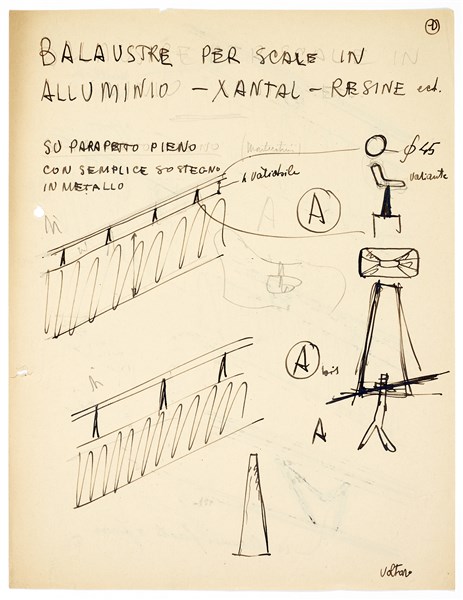 BALAUSTRE PER SCALE IN
ALLUMINIO – XANTAL – RESINE ect.
SU PARAPETTO PIENO
CON SEMPLICE SOSTEGNO
IN METALLO
h variabile
A
φ 45
variante
A bis
A